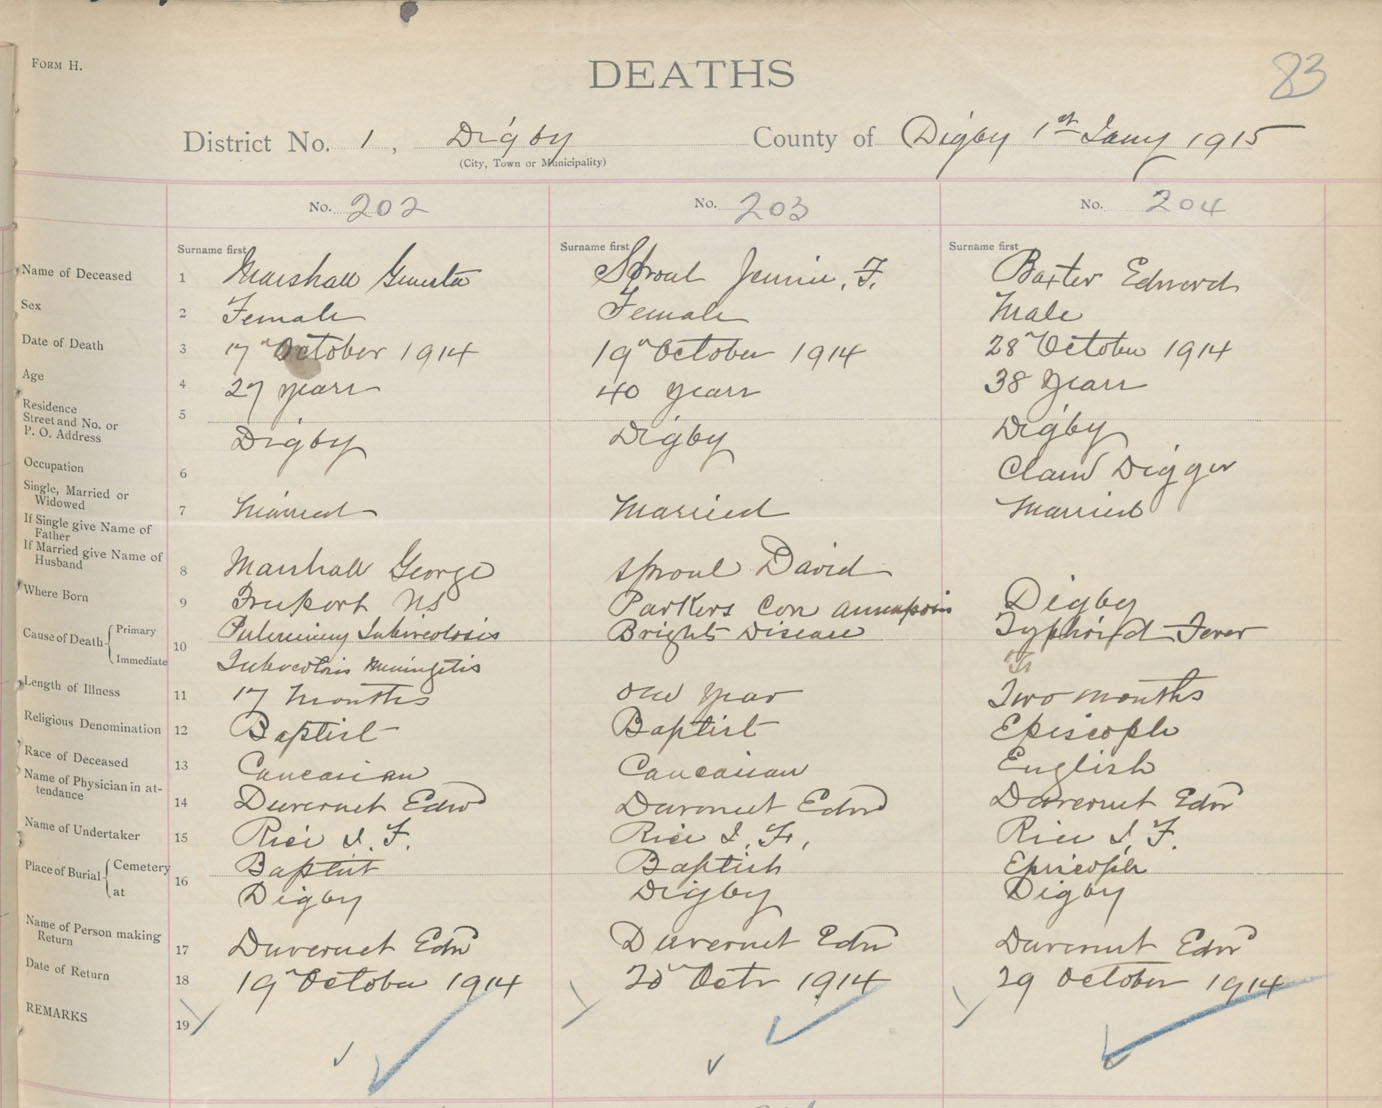 FORM H.
DEATHS
83
District No. 1, Digby County of Digby 1st Jany 1915
(City, Town or Municipality)
No. 202 No. 203 No. 204
Surname first Surname first Surname first
Name of Deceased 1 Marshall Sproul Jennie. F. Baxter Edward
Sex 2 Female Female Male
Date of Death 3 17" October 1914 19" October 1914 28" October 1914
Age 4 27 years 40 years 38 years
Residence
Street and No. or
P. O. Address 5 Digby Digby Digby
Occupation 6 Clam Digger
Single, Married or
Widowed 7 Married Married Married
If Single give Name of
Father
If Married give Name of
Husband 8 Marshall George Sproul David
Where Born 9 Freeport NS Parkers Cov Annapolis Digby
Cause of Death Primary 10 Pulminary Tubircolosis Brights Disease Typhoid Fever
Immediate Tubircolosis Miningitis
Length of Illness 11 17 months one year Two months
Religious Denomination 12 Baptist Baptist Episcople
Race of Deceased 13 Caucasian Caucasian English
Name of Physician in at-
tendance 14 Duvernet Edwd Duvernet Edwd Duvernet Edwd
Name of Undertaker 15 Rice J. F. Rice J. F. Rice J. F.
Place of Burial Cemetery 16 Baptist Baptish Episcople
at Digby Digby Digby
Name of Person making
Return 17 Duvernet Edwd Duvernet Edwd Duvernet Edwd
Date of Return 18 19" October 1914 20" Octr 1914 29 October 1914
REMARKS 19